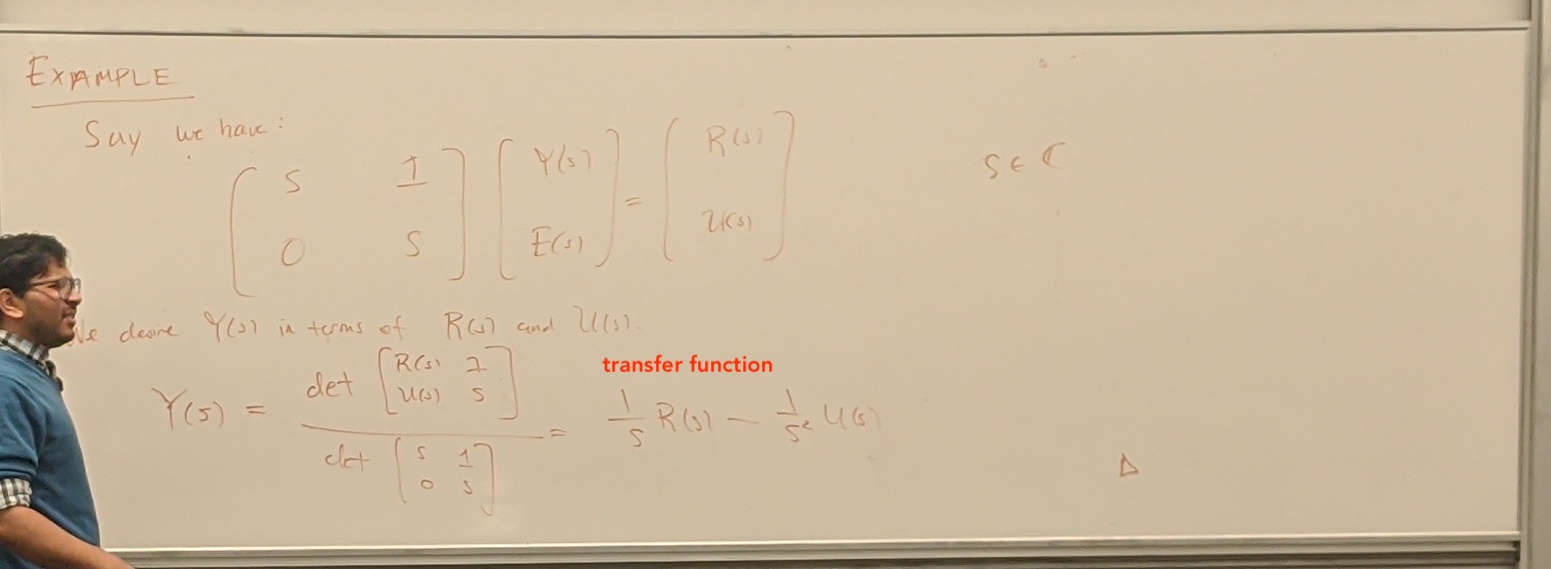 EXAMPLE
Say we have:
[ s 1 ] [ Y(s) ] = [ R(s) ] s ∈ ℂ
[ 0 s ] [ E(s) ] [ U(s) ]
desire Y(s) in terms of R(s) and U(s).
transfer function
Y(s) = det [ R(s) 1 ; U(s) s ] / det [ s 1 ; 0 s ] = 1/s R(s) − 1/s² U(s)
Δ